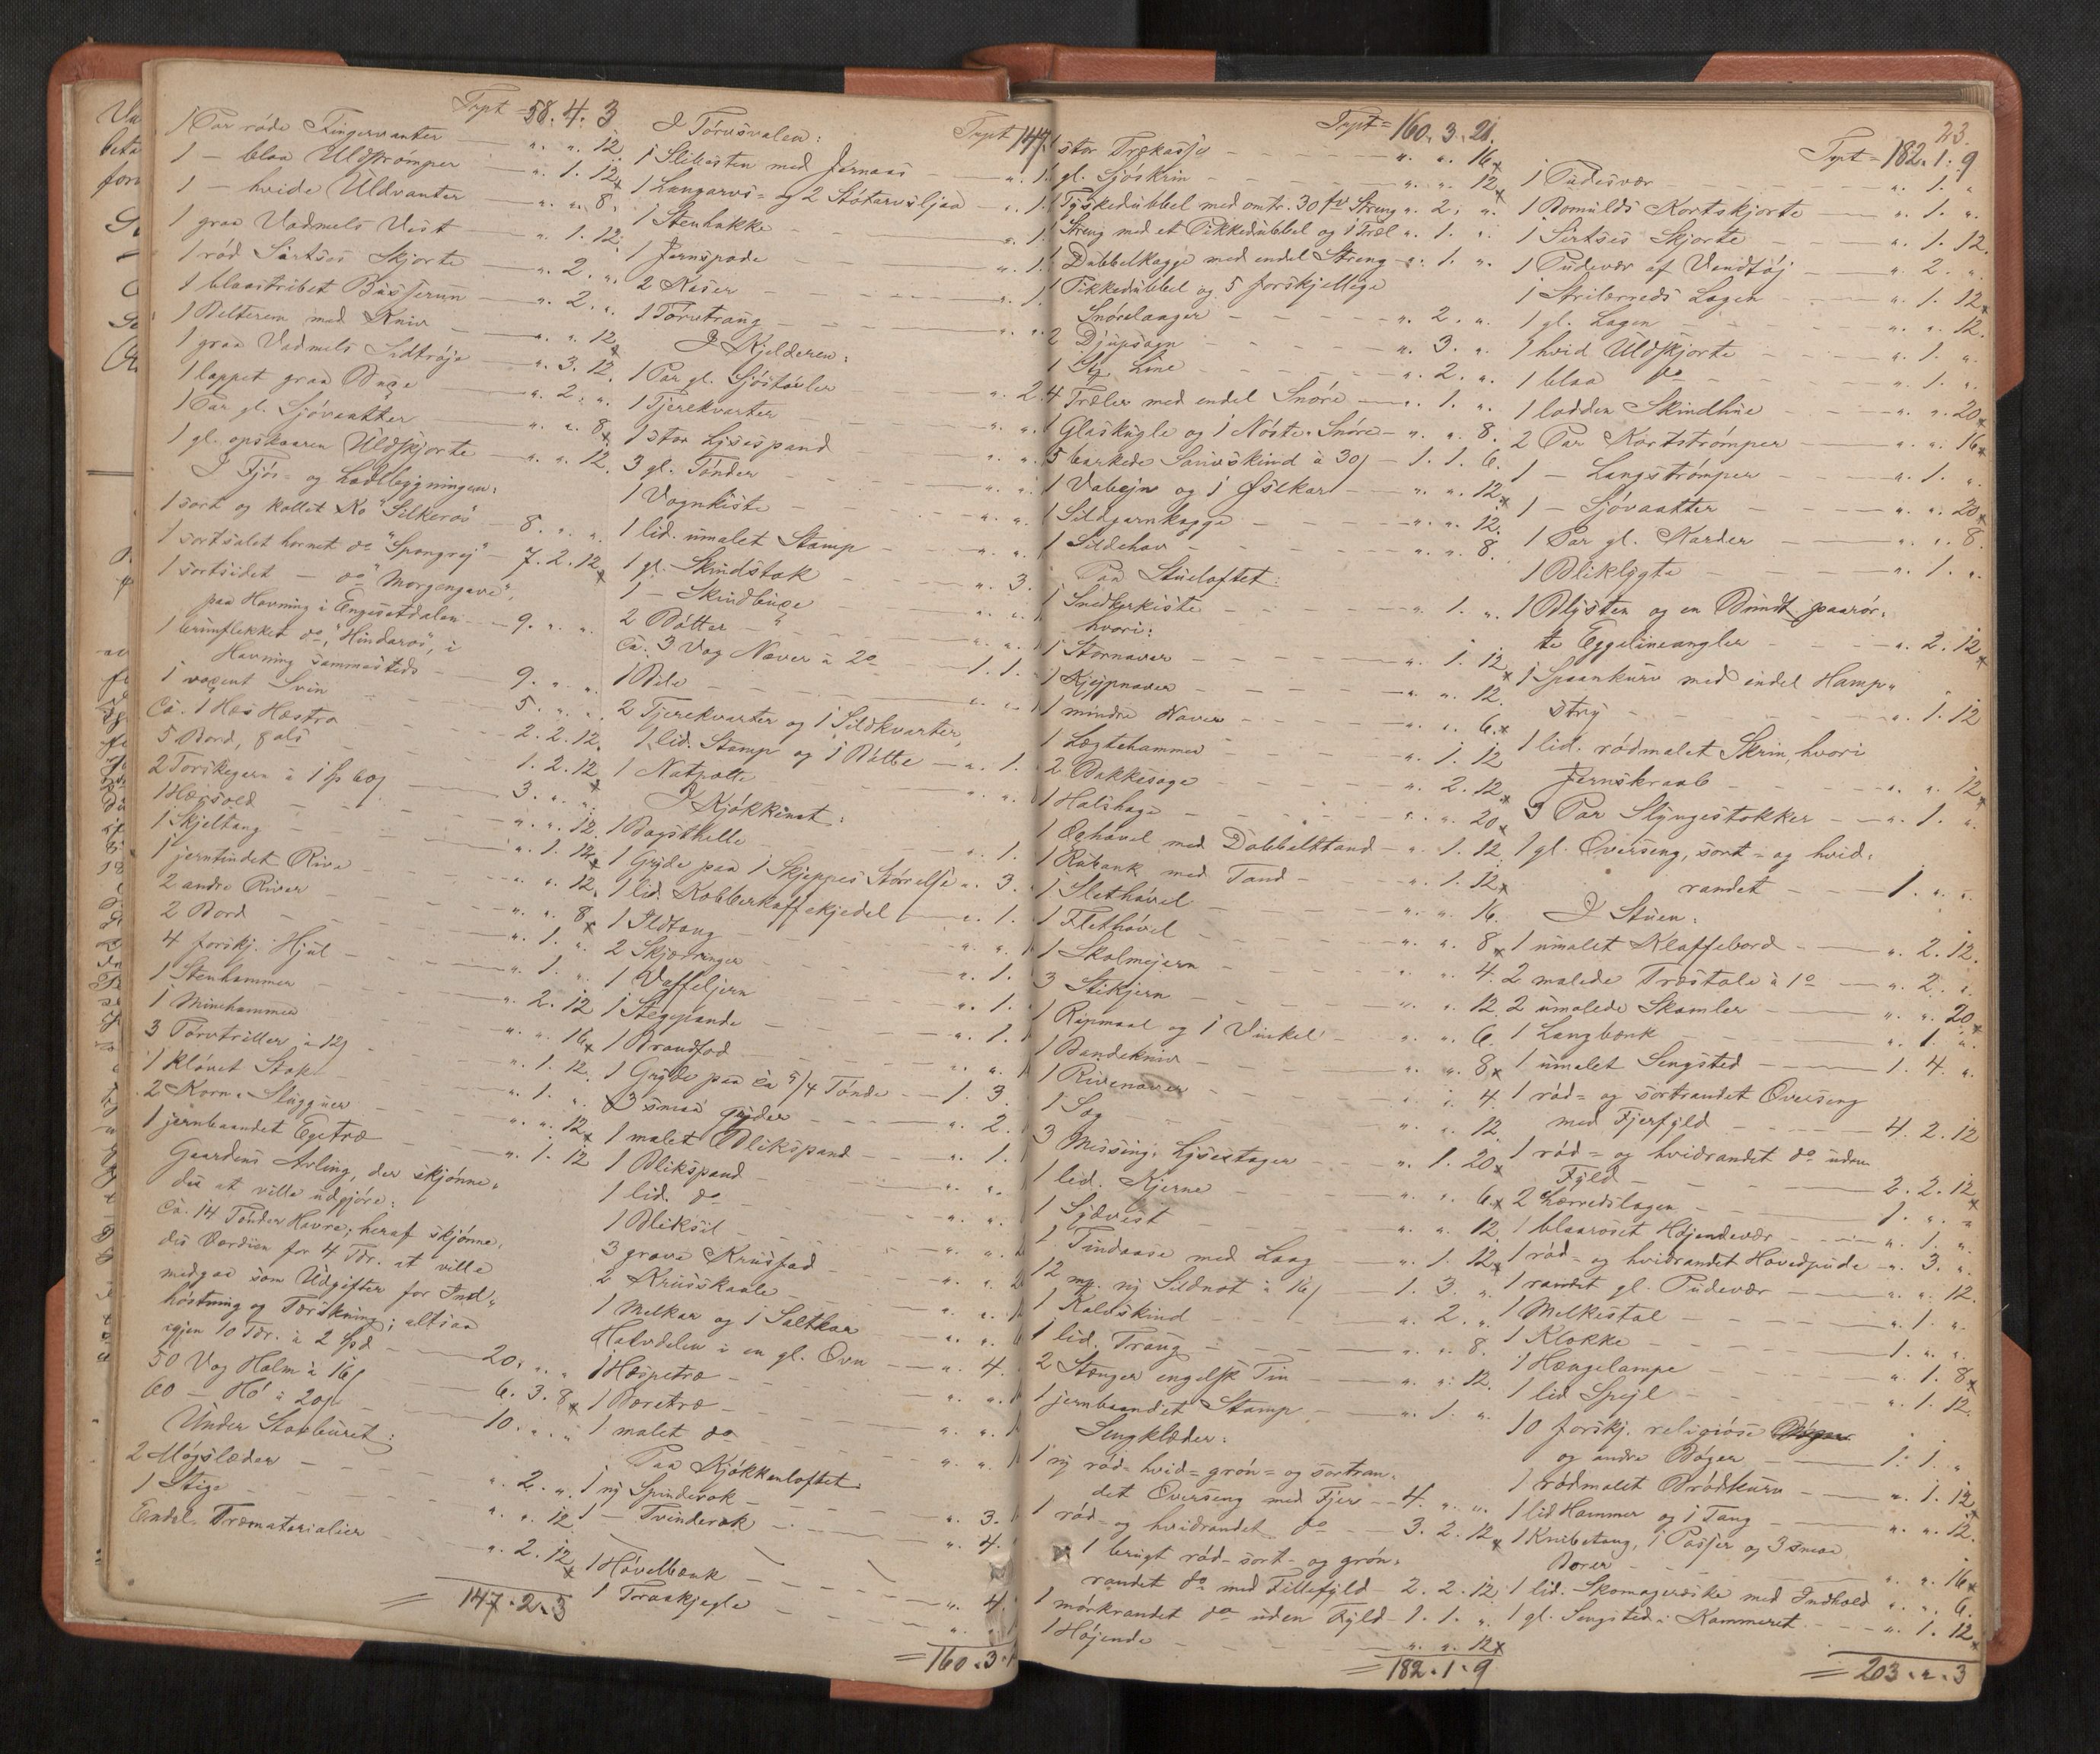 Trpt = 58. 4. 3
1 Par röde Fingervanter — „ . „ . 12
1 — blaa Uldströmper — „ . 1. 12
1 — hvide Uldvanter — „ . „ . 8.
1 graa Vadmels Vest — „ . 1. 12.
1 röd Sirtses Skjorte — „ . 2. „
1 blaastribet Busserun — „ . 2. „
1 Belterem med Kniv — „ . „ . 12
1 graa Vadmels Sidtröje — „ . 3. 12.
1 lappet graa Buxe — „ . 2. „
1 Par gl. Sjövaatter — „ . „ . 8
1 gl. opskaaren Uldskjorte — „ . „ . 12.
I Fjös- og Ladebygningen:
1 sort og kollet Ko "Silkeros" — 8. „ . „
1 sortsidet hornet do "Sprangrej" — 7. 2. 12.
1 sortsidet — do "Morgengave",
paa Havning i Engesetdalen — 9. „ . „
1 brunflekket do, "Hindaros", i
Havning sammesteds — 9. „ . „
1 voxent Svin — 5. „ . „
Ca. 1 Hæs Hæstro — 2. 2. 12.
5 Bord, 8 als — 1. 2. 12
2 Torskegarn à 1 Sp 60/ — 3. „ . „
1 Hærsold — „ . „ . 12.
1 Skjeltang — „ . 1. 12
1 jerntindet Rive — „ . „ . 12.
2 andre River — „ . „ . 8
2 Bord — „ . 1. „
4 forskj. Hjul — „ . 1. „
1 Stenhammer — „ . 2. 12
1 Minehammer — „ . „ . 16
3 Torvtriller à 12/ — „ . 1. 12.
1 klövet Stok — „ . 1. „
2 Korn-Skugguer — „ . „ . 12
1 jernbaandet Egetræ — „ . 1. 12
Gaardens Avling, der skjönne-
des at ville udgjöre:
Ca. 14 Tönder Havre; heraf skjönne-
des Værdien for 4 Tdr. at ville
medgaa som Udgifter for Ind-
höstning og Tærskning; altsaa
igjen 10 Tdr. à 2 Spd — 20. „ . „
50 Vog Halm à 16/ — 6. 3. 8
60 — Hö à 20/ — 10. „ . „
Under Stabburet:
2 Mögslæder — „ . 2. „
1 Stige — „ . „ . 12
Endel Træmaterialier — „ . 2. 12
= 147. 2. 3
I Torvsvalen: Trpt 147.
1 Slibesten med Jernaas — „ . 1.
1 Langarvs- og 2 Stötarvsljaa — „ . 1.
1 Stenhakke — „ . 1.
1 Jernspade — „ . 1.
2 Naser — „ . 1.
1 Torvtraug — „ . „
I Kjelderen:
1 Par gl. Sjöstövler — „ . 2.
1 Tjerekvarter — „ . „
1 stor Lysespand — „ . „
3 gl. Tönder — „ . „
1 Vognkiste — „ . „
1 lid. umalet Stamp — „ . „
1 gl. Skindstak — „ . 3.
1 — Skindbuxe — „ . „
2 Bötter — „ . „
Ca. 3 Vog Næver à 2o — 1. 1.
1 Bile — „ . „
2 Tjerekvarter og 1 Sildkvarter,
1 lid. Stamp og 1 Bötte — „ . 1.
1 Natpotte — „ . „
I Kjökkenet:
1 Bagsthelle — „ . 1.
1 Gryde paa 1 Skjeppes Störrelse „ . 3.
1 lid. Kobberkaffekjedel — „ . 1.
1 Ildtang — „ . „
2 Skjærringer — „ . 1.
1 Vaffeljern — „ . 1.
1 Stegepande — „ . 1.
1 Brandfad — „ . „
1 Gryde paa Ca 5/4 Tönde — 1. 3.
3 smaa gryder — „ . 2.
1 malet Blikspand — „ . 1.
1 Blikspand — „ . „
1 lid. do — „ . „
1 Bliksil — „ . „
3 grove Krusfad — „ . „
2 Krusskaale — „ . „
1 Melkar og 1 Saltkar — „ . „
Halvdelen i en gl. Ovn — „ . 4.
1 Hæspetræ — „ . „
1 Bæretræ — „ . „
1 malet do — „ . „
Paa Kjökkenloftet
1 ny Spinderok — „ . 3.
1 — Tvinderok — „ . 4.
1 Hövelbænk — „ . 4
1 Toraakjegle — „ . „
= 160. 3.
Trpt = 160. 3. 21.
1 stor Trækasse — „ . „ . 16
1 gl. Sjöskrin — „ . „ . 12
1 Tyskedubbel med omtr. 30 fv Streng „ . 2. „
1 Streng med et Pikkedubbel og 1 Træl „ . 1. „
1 Dubbelkagge med endel Streng — „ . 1. „
1 Pikkedubbel og 5 forskjellige
Snörelaager — „ . 2. „
2 Djupsagn — „ . 3. „
1 Stj. Line — „ . 2. „
4 Træler med endel Snöre — „ . 1. „
1 Glaskugle og 1 Nöste Snöre — „ . „ . 8.
5 barkede Sauvskind à 30/ — 1. 1. 6.
1 Vabejn og 1 Øsekar — „ . „ . 12
1 Sildgarnkagge — „ . „ . 12
1 Sildehov — „ . „ . 8
Paa Stueloftet:
1 Snedkerkiste — „ . 1. „
hvori:
1 Stornaver — „ . 1. 12
1 Kjejpnaver — „ . „ . 12.
1 mindre Naver — „ . „ . 6.
1 Lægtehammer — „ . 1. 12
2 Bakkesage — „ . 2. 12
1 Halshage — „ . „ . 20
1 Oghövel med Dobbelttand — „ . 1. 12
1 Rubank med Tand — „ . 1. 12
1 Slethövel — „ . „ . 16.
1 Flethövel — „ . „ . 8
1 Skolmejern — „ . „ . 4.
3 Stikjern — „ . „ . 12
1 Ripmaal og 1 Vinkel — „ . „ . 6.
1 Bandekniv — „ . „ . 8
1 Rivenaver — „ . „ . 4
1 Sag — „ . „ . 12
3 Messing-Lysestager — „ . 1. 20
1 lid. Kjerne — „ . „ . 6
1 Sydvest — „ . „ . 12
1 Tindaase med Laag — „ . 1. 12
12 mg. ny Sildnot à 16/ — 1. 3. „
1 Kalvskind — „ . 2. „
1 lid. Traug — „ . „ . 8.
2 Stænger engelsk Tin — „ . „ . 12.
1 jernbaandet Stamp — „ . 1. „
Sengklæder:
1 ny röd- hvid- grön- og sortran-
det Overseng med Fjer — 4. „ . „
1 röd- og hvidrandet do — 3. 2. 12
1 brugt röd- sort- og grön-
randet do med Fillefyld — 2. 2. 12
1 mörkrandet do uden Fyld — 1. 1. „
1 Höjende — „ . „ . 12
= 182. 1. 9
23.
Trpt = 182. 1. 9
1 Pudesvær — „ . 1. „
1 Bomulds Kortskjorte — „ . 1. „
1 Sirtses Skjorte — „ . 1. 12
1 Pudevær af Vendtöj — „ . 2. „
1 Strilærreds Lagen — „ . 1. 12
1 gl. Lagen — „ . „ . 12.
1 hvid Uldskjorte — „ . 1. „
1 blaa do — „ . 1. „
1 lodden Skindhue — „ . „ . 20
2 Par Kortströmper — „ . „ . 16
1 — Langströmper — „ . 1. „
1 — Sjövaatter — „ . „ . 20
1 Par gl. Karder — „ . „ . 8
1 Bliklygte — „ . 1. „
1 Blysten og en Bundt paarör-
te Eggelineangler — „ . 2. 12
1 Spaankurv med endel Hamp-
stry — „ . 1. 12
1 lid. rödmalet Skrin, hvori
Jernskraab — „ . „ . 12
3 Par Slyngestokker — „ . 1. „
1 gl. Overseng, sort- og hvid-
randet — 1. „ . „
I Stuen:
1 umalet Klaffebord — „ . 2. 12.
2 malede Træstole à 1o — „ . 2. „
2 umalede Skamler — „ . „ . 20
1 Langbænk — „ . 1. „
1 umalet Sengsted — 1. 4. „
1 röd- og sortrandet Overseng
med Fjerfyld — 4. 2. 12
1 röd- og hvidrandet do uden
Fyld — 2. 2. 12
2 Lærredslagen — 1. „ . „
1 blaaroset Höjendevær — „ . 1. „
1 röd- og hvidrandet Hovedpude — „ . 3. „
1 randet gl. Pudevær — „ . „ . 12.
1 Melkestol — „ . 1. „
1 Klokke — 1. „ . „
1 Hængelampe — „ . 1. 8
1 lid Spejl — „ . 1. 12.
10 forskj. religiöse Böger
og andre Böger — 1. 1. „
1 rödmalet Brödkurv — „ . 1. 12
1 lid Hammer og 1 Tang — „ . „ . 12.
1 Knibetang, 1 Passer og 3 smaa
Borer — „ . „ . 16
1 lid. Skomageræske med Indhold „ . „ . 6.
1 gl. Sengsted i Kammeret — „ . 1. 12
= 203. „ . 3